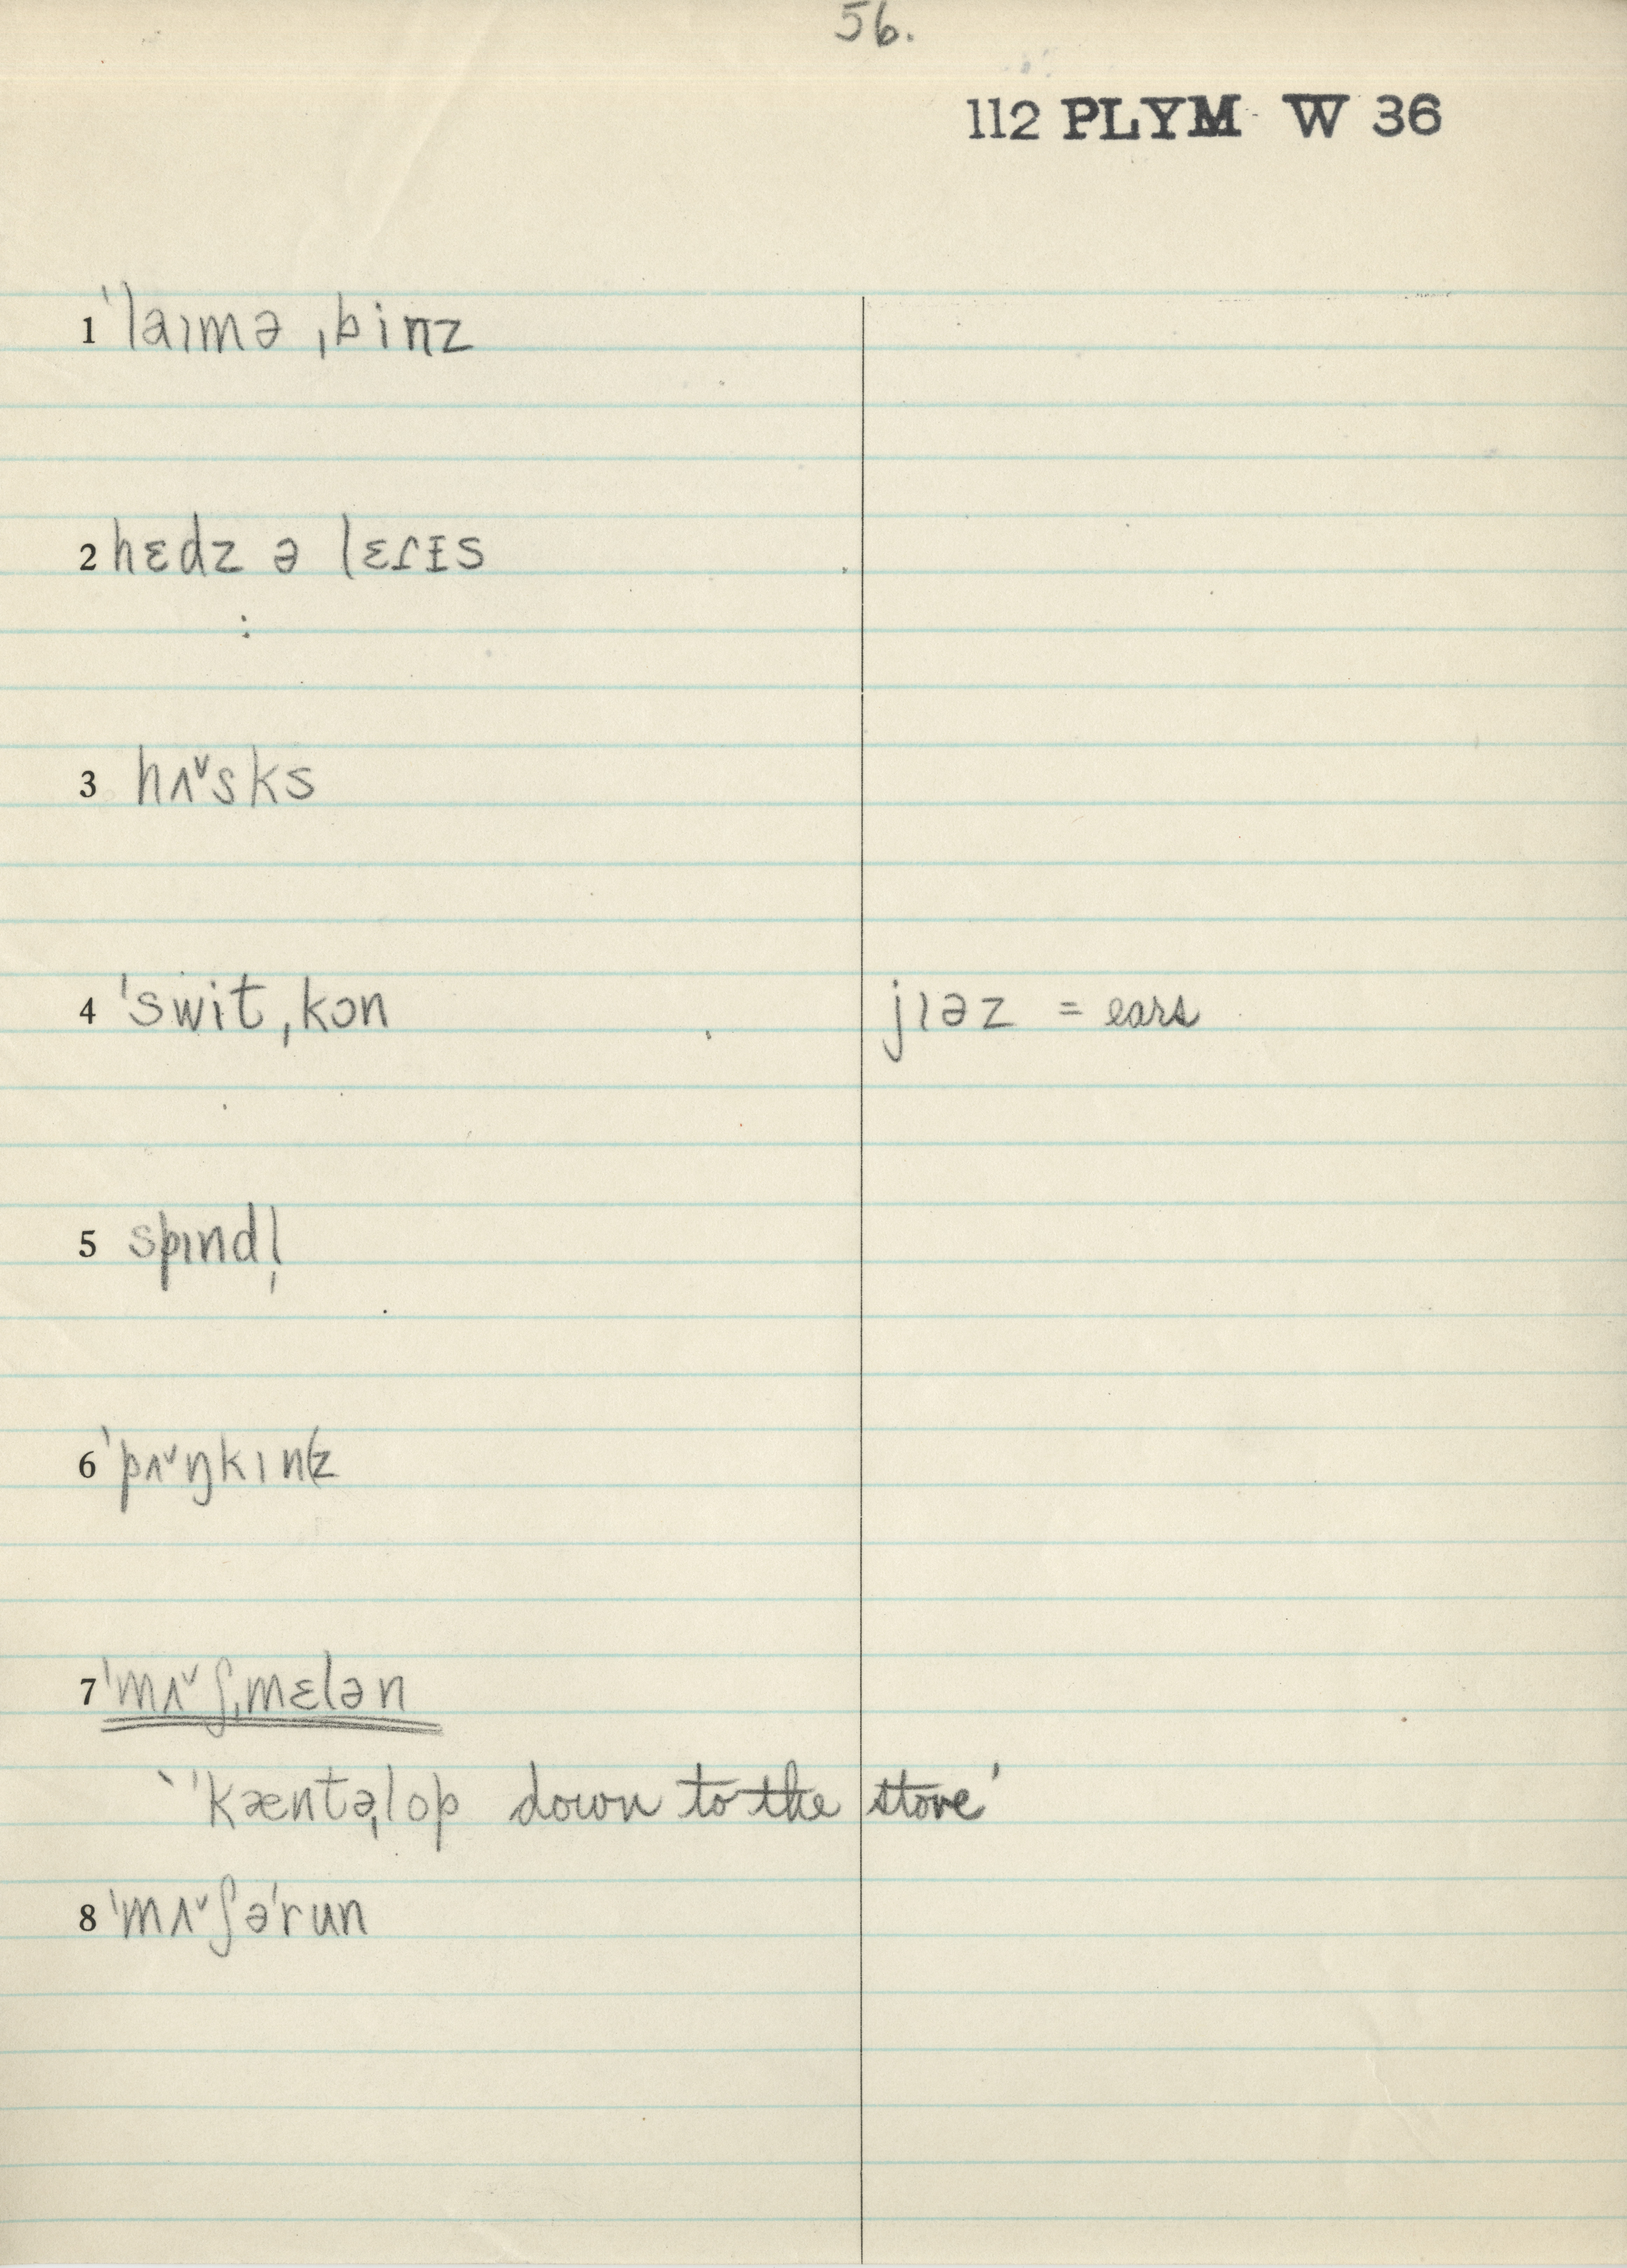 56.
112 PLYM W 36
1 ˈlaɪmə ˌbinz
2 hɛdz ə lɛɾɪ̵s
3 hʌ˅sks
4 ˈswit ˌkɔn jɪəz = ears
5 spɪndl̩
6 ˈpʌ˅ŋkɪn(z
7 ˈmʌ˅ʃˌmɛlən
‘ˈkæntəˌlop down to the store’
8 ˈmʌ˅ʃəˈrun